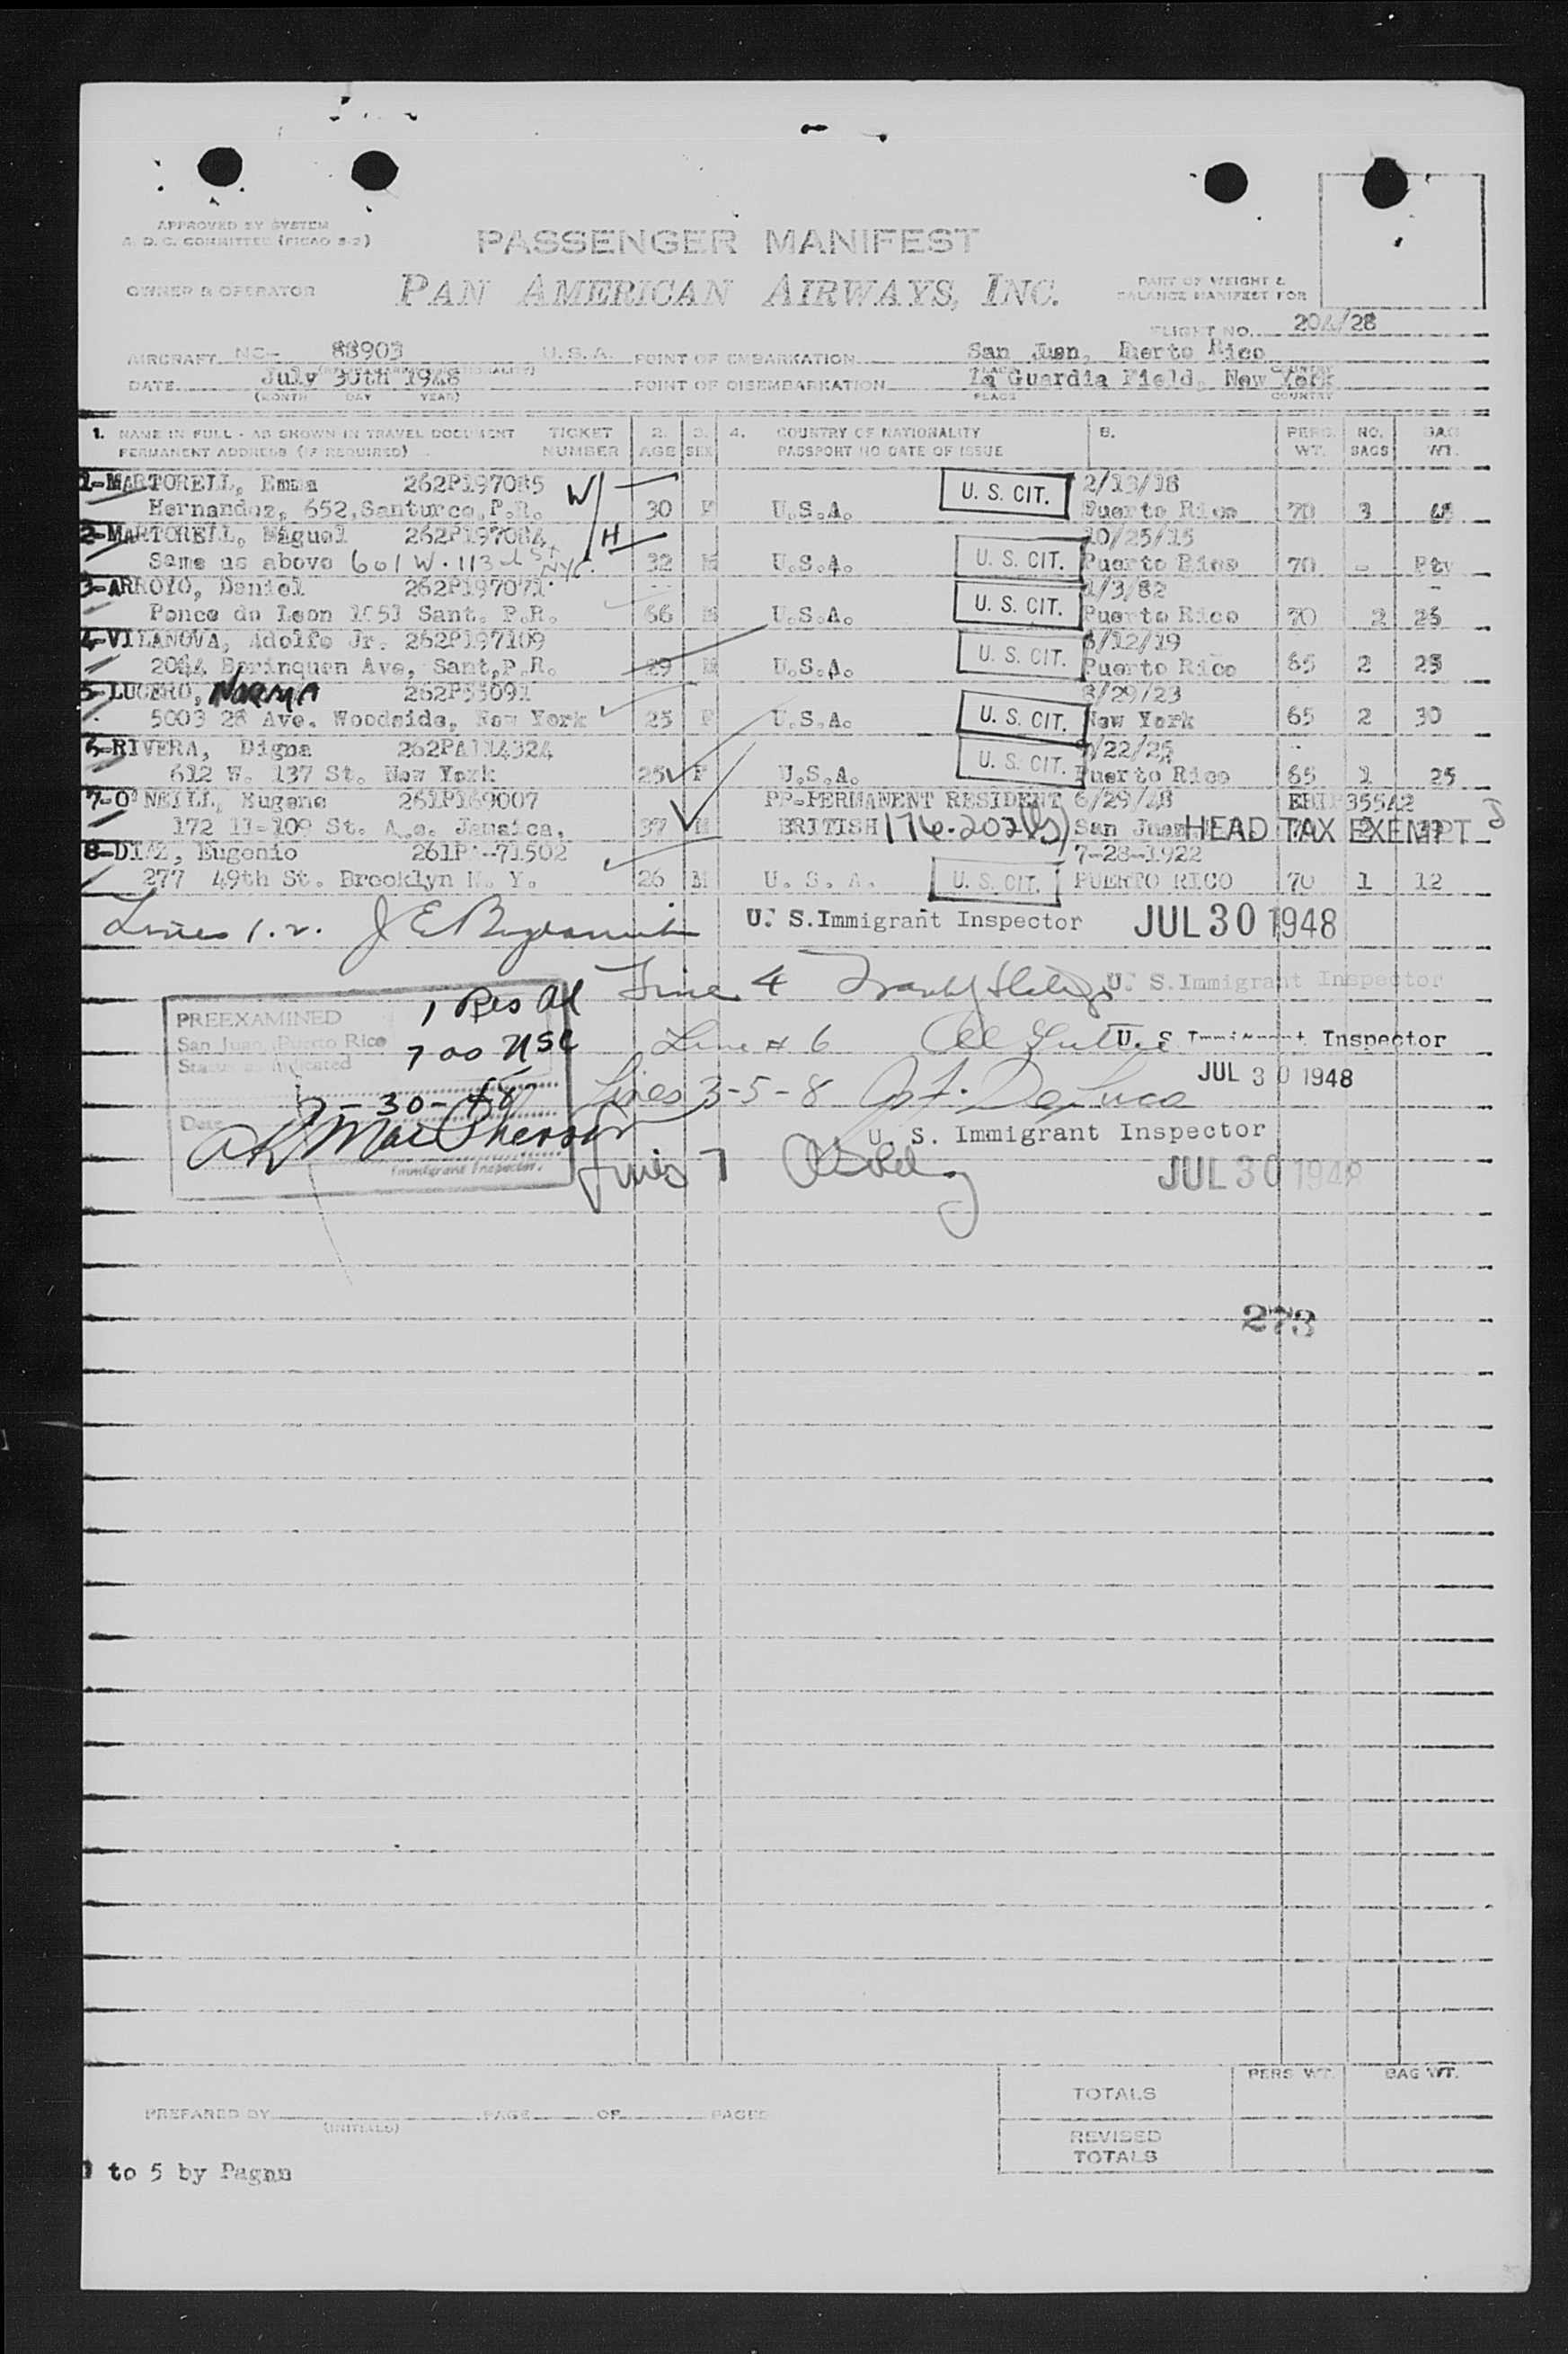 APPROVED BY SYSTEM
A. D. C. COMMITTEE (PICAO 8-2)
PASSENGER MANIFEST
OWNER & OPERATOR PAN AMERICAN AIRWAYS, INC.
PART OF WEIGHT &
BALANCE MANIFEST FOR
FLIGHT NO. 204/28
AIRCRAFT NC- 88903 U.S.A. POINT OF EMBARKATION San Juan, Puerto Rico
DATE July 30th 1948 POINT OF DISEMBARKATION La Guardia Field, New York
(MONTH DAY YEAR) PLACE COUNTRY
1. NAME IN FULL - AS SHOWN IN TRAVEL DOCUMENT TICKET 2. 3. 4. COUNTRY OF NATIONALITY PERS. NO. BAG
PERMANENT ADDRESS (IF REQUIRED) NUMBER AGE SEX PASSPORT NO DATE OF ISSUE WT. BAGS WT.
1-MARTORELL, Emma 262P197085 W/ U. S. CIT. 2/13/18
Hernandez, 652, Santurce, P.R. 30 F U.S.A. Puerto Rico 70 3
2-MARTORELL, Miguel 262P197084 H 10/25/15
Same as above 601 W. 113 St NYC. 32 M U.S.A. U. S. CIT. Puerto Rico 70 -
3-ARROYO, Daniel 262P197071 1/3/82
Ponce de Leon 1051 Sant. P.R. 66 M U.S.A. U. S. CIT. Puerto Rico 70 2 25
4-VILANOVA, Adolfo Jr. 262P197109 6/12/19
Borinquen Ave, Sant, P.R. 29 M U.S.A. U. S. CIT. Puerto Rico 65 2 25
5-LUCERO, NORMA 262P53091 8/29/23
5003 28 Ave. Woodside, New York 25 F U.S.A. U. S. CIT. New York 65 2 30
6-RIVERA, Digna 262PA114324 /22/25
612 W. 137 St. New York 25 F U.S.A. U. S. CIT. Puerto Rico 65 1 25
7-O'NEILL, Eugene 261P169007 PP-PERMANENT RESIDENT 6/29/48 355A2
172 11-109 St. Ave. Jamaica, 37 M BRITISH 176.202 San Juan HEAD TAX EXEMPT
8-DIAZ, Eugenio 261P -71502 7-28-1922
277 49th St. Brooklyn N. Y. 26 M U. S. A. U. S. CIT. PUERTO RICO 70 1 12
Lines 1.2. U. S. Immigrant Inspector JUL 30 1948
Line 4 U. S. Immigrant Inspector
PREEXAMINED 1 Res Al
San Juan, Puerto Rico 7 00 USC
Status as indicated
Line # 6 U. S. Immigrant Inspector
JUL 30 1948
Date 7-30-48
Lines 3-5-8 De Luca
MacPherson
U. S. Immigrant Inspector
Immigrant Inspector.
Lines 7 JUL 30 1948
273
TOTALS PERS WT. BAG WT.
PREPARED BY PAGE OF PAGES
(INITIALS)
REVISED
TOTALS
1 to 5 by Pagan